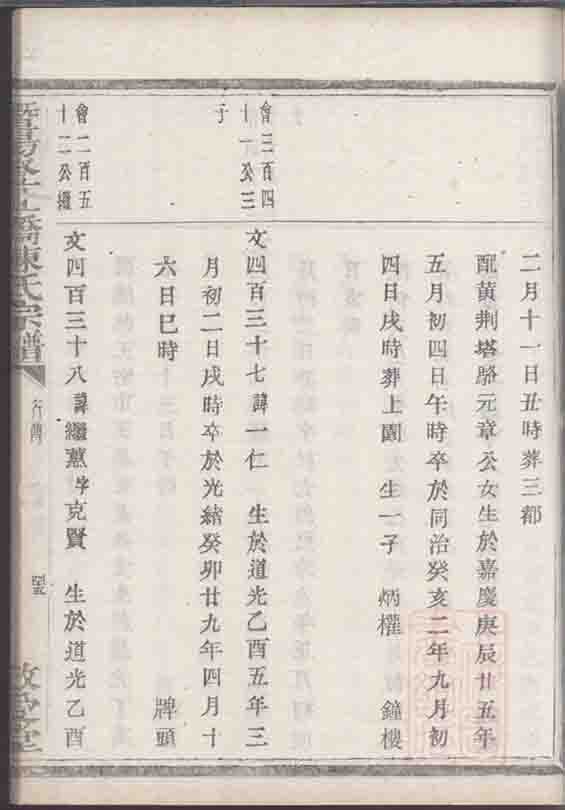 二月十一日丑時葬三都
配黃荆塔駱元章公女生於嘉慶庚辰廿五年
五月初四日午時卒於同治癸亥二年九月初
四日戌時葬上園 生一子 炳權 鐘樓
會三百四
十一公三
子
文四百三十七諱一仁 生於道光乙酉五年三
月初二日戌時卒於光緒癸卯廿九年四月十
六日巳時 牌頭
會二百五
十二公繼
文四百三十八諱繼薫字克賢 生於道光乙酉
橋陳氏宗譜
行傳